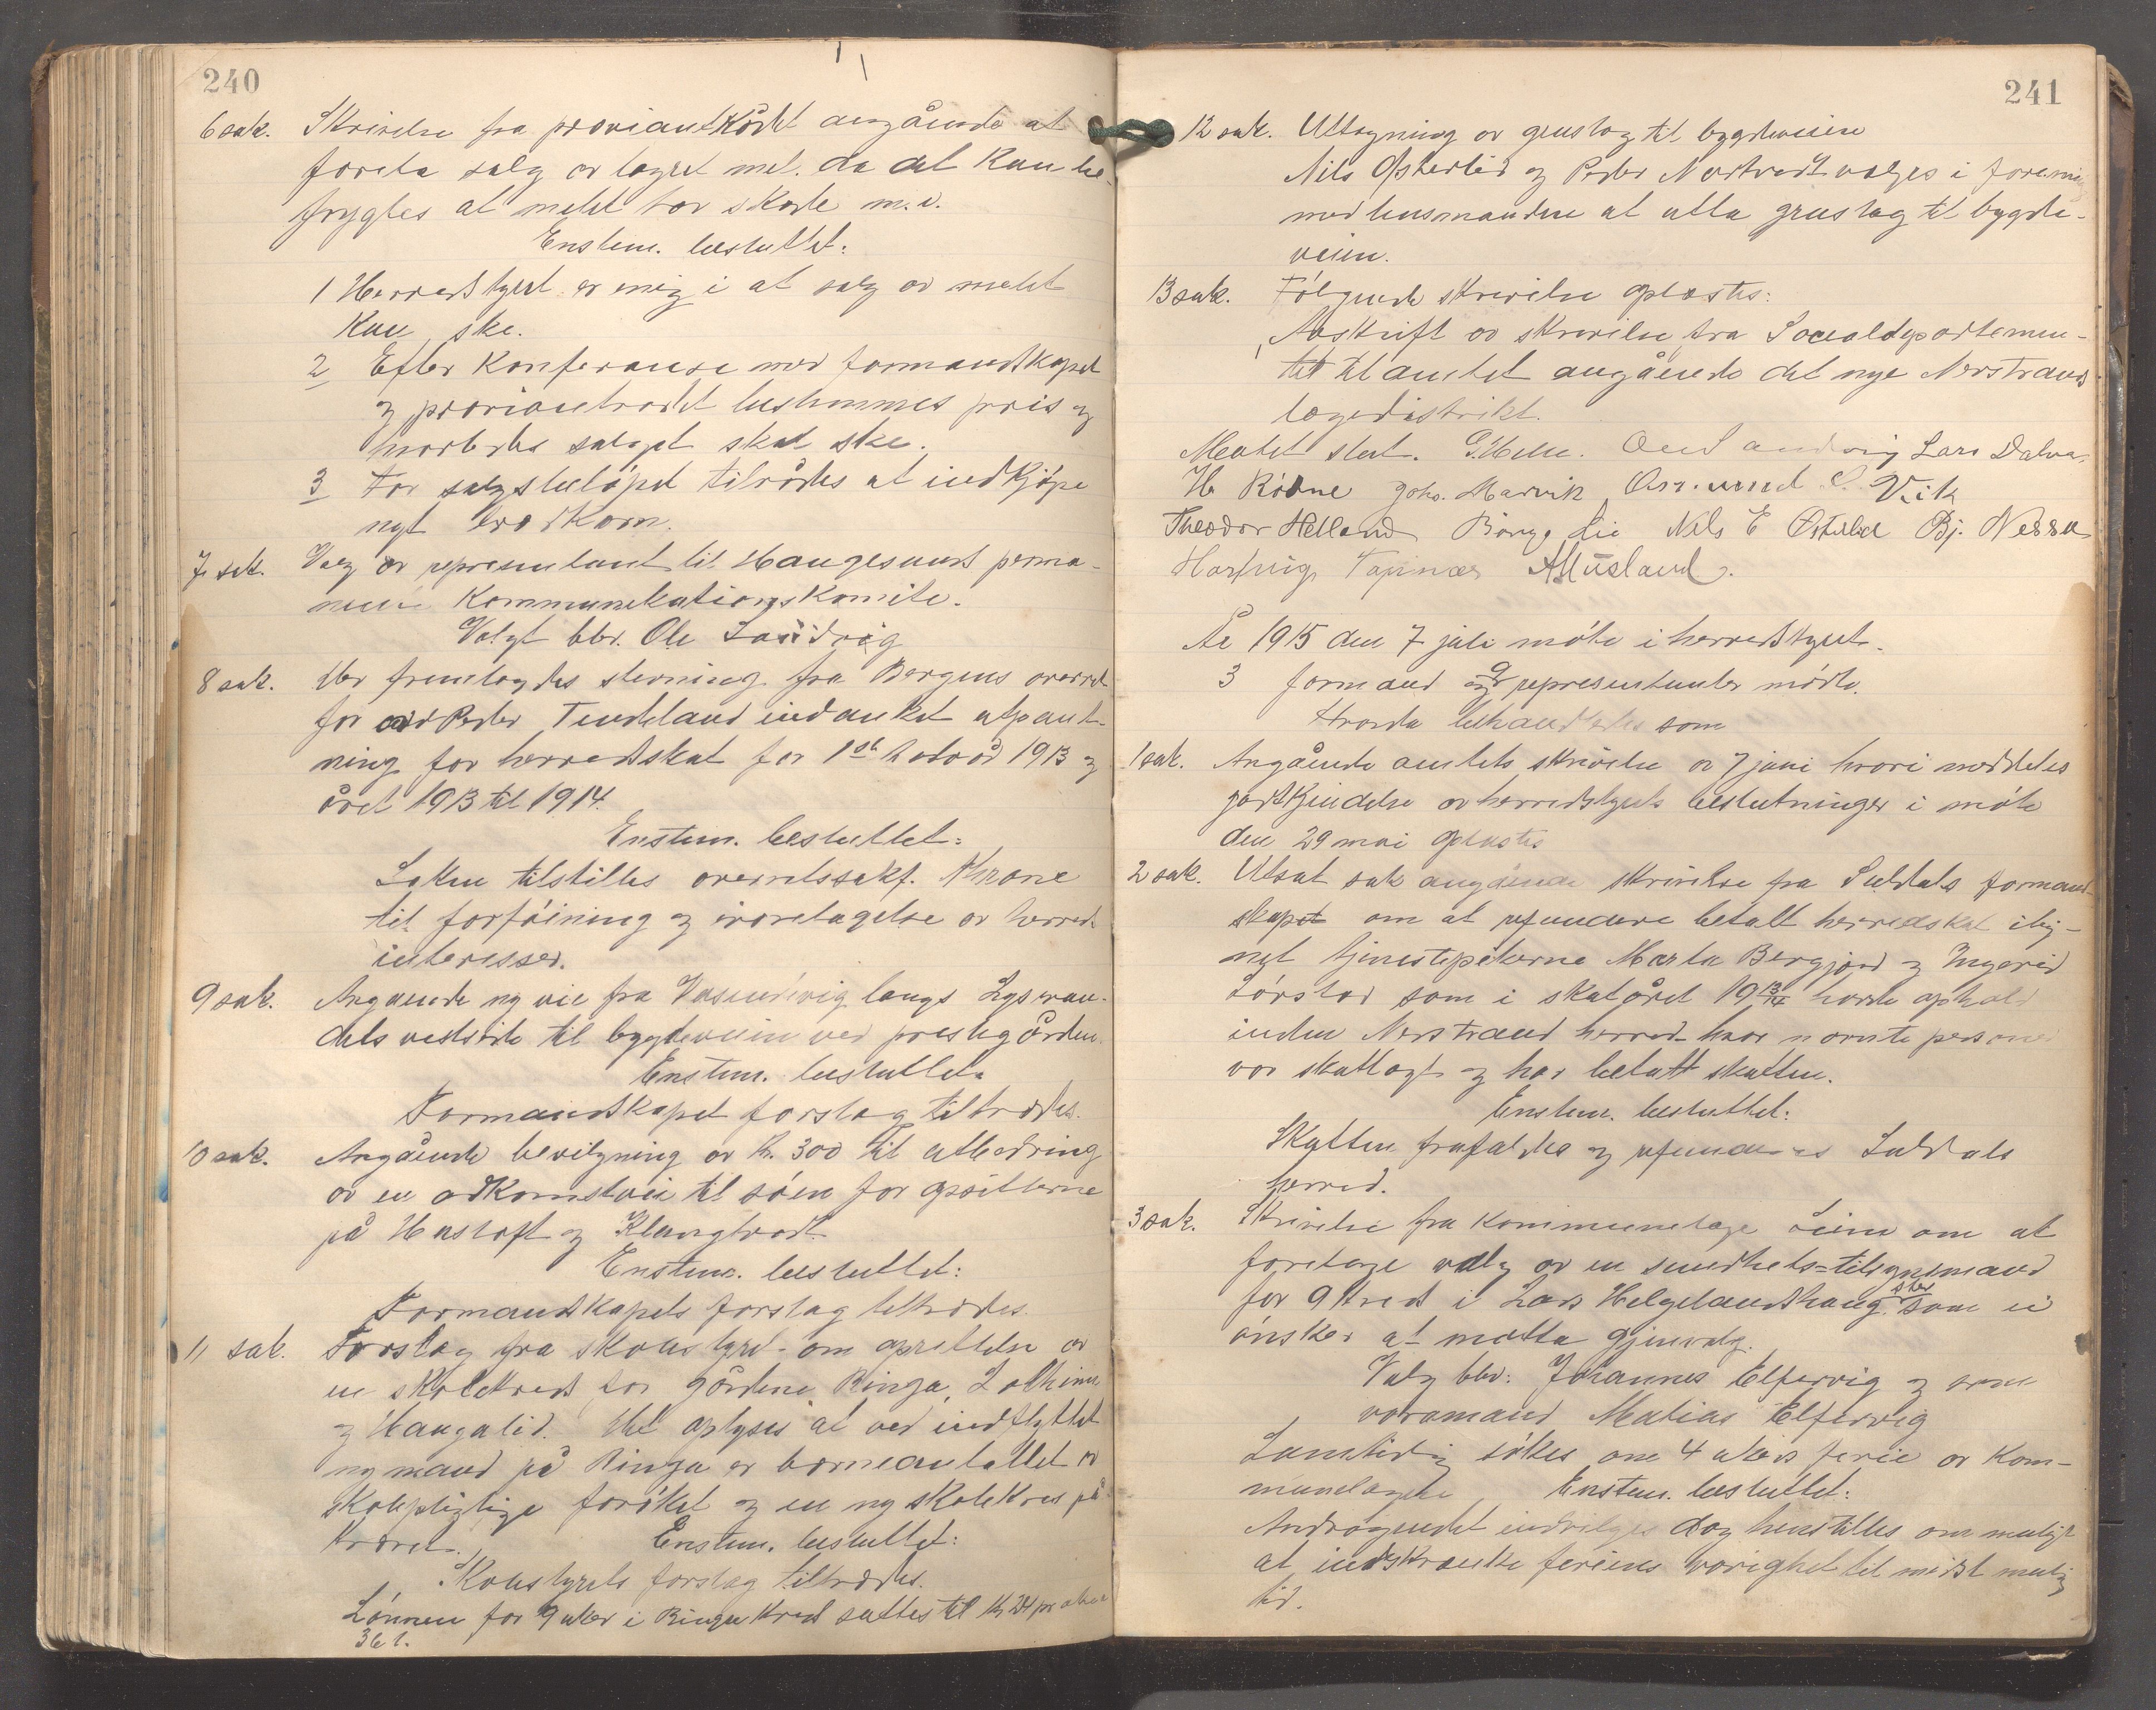 240
6 sak. Skrivelse fra proviantrådet angående at
foreta salg av lagret mel. da det kan be-
frygtes at melet tar skade m.v.
Enstem. besluttet:
1 Herredstyret er enig i at salg av melet
kan ske.
2 Efter konferanse med formandskapet
og proviantrådet bestemmes pris og
hvorledes salget skal ske.
3 For salgsbeløpet tilrådes at indkjøpe
nyt brødkorn.
7 sak. Valg av representant til Haugesunds perma-
nente kommunikationskomite.
Valgt blev. Ole Sandvig
8 sak. Her fremlagdes stevning fra Bergens overret
for Peder Tindeland indanket utpant-
ning for herredskat for 1ste halvår 1913 og
året 1913 til 1914.
Enstem. besluttet:
Saken tilstilles overretssakf. Krone
til forføining og ivaretagelse av herred
interesser.
9 sak. Angaende ny vei fra langs
dels vestside til bygdeveien ved prestegården.
Enstem. besluttet:
Formandskapet forslag tiltrædes.
10 sak. Angående bevilgning av Kr. 300 til utbedring
av en adkomstvei til søen for opsitterne
på Hustoft og
Enstem. besluttet:
Formandskapets forslag tiltrædes.
11 sak. Forslag fra skolestyret om oprettelse av
en skolekreds for gårdene Ringja,
og Haugalid. Det oplyses at ved indflyttet
ny mand på Ringja er barneantallet av
skolepligtige forøket og en ny skolekres på-
krævet. Enstem. besluttet:
Skolestyrets forslag tiltrædes.
Lønnen for 9 uker i Ringja kreds sættes til kr 24 pr uke
36 t.
241
12 sak. Uttagning av grustag til bygdeveien
Nils Østerlid og Peder Nedtvedt vælges i forening
med lensmanden at utta grustag til bygde-
veien.
13 sak. Følgende skrivelse oplæstes:
Avskrift av skrivelse fra Socialdepartemen-
tet til amtet angående det nye Nerstrand
lægedistrikt.
Møtet slut. G. Helle. Ole Sandvig Lars Dalva
H Rødne Johs. Marvik Osmund S. Vik
Theodor Helland Børge Lie Nils E Østerlid Bj. Nessa
Hartvig
År 1915 den 7 juli møte i herredstyret.
3 formænd og 9 representanter møtte.
Hvorda behandledes som
1 sak. Angående amtets skrivelse av 7 juni hvori meddeles
godkjendelse av herredstyrets beslutninger i møte
den 29 mai oplæstes.
2 sak. Utsat sak angående skrivelse fra Suldals formand-
skapet om at refundere betalt herredskat ilig-
net tjenestepikerne Marta Bergjord og Ingerid
Førstad som i skatåret 1913/14 hadde ophold
inden Nerstrand herred hvor nævnte personer
var skatlagt og har betalt skatten.
Enstem. besluttet:
Skatten frafaldes og refunderes Suldals
herred.
3 sak. Skrivelse fra kommunelæge Leine om at
foretage valg av en sundhets=tilsynsmand
for 9 kreds i Lars Helgelandshaug sted som ei
ønsker at motta gjenvalg.
Valg blev: Johannes Elfervig og som
varamand Matias Elfervig
Samtidig søkes om 4 ukers ferie av kom-
munelægen Enstem. besluttet:
Andragendet indvilges dog henstilles om muligt
at indskrænke feriens varighet til mindst mulig
tid.